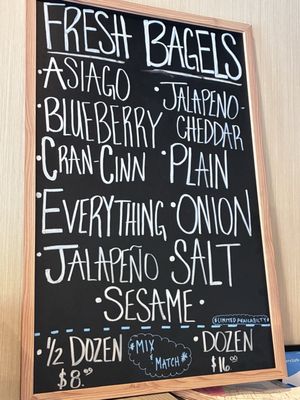 FRESH BAGELS
·ASIAGO
·JALAPEÑO-
CHEDDAR
·BLUEBERRY
·CRAN-CINN
·PLAIN
·EVERYTHING
·ONION
·JALAPEÑO
·SALT
·SESAME·
*LIMITED AVAILABILTY
·1/2 DOZEN
$8.00
*MIX
& MATCH*
·DOZEN
$16.00